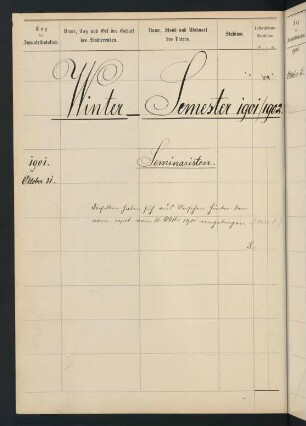 Tag
der
Immatrikulation.
Name, Tag und Ort der Geburt
des Studierenden.
Name, Stand und Wohnort
des Vaters.
Studium.
Winter- Semester 1901/1902.
1901.
Oktober 31.
Seminaristen.
Dieselben haben sich aus Versehen hinter dem
vom 31. Okt. 1901 eingetragen